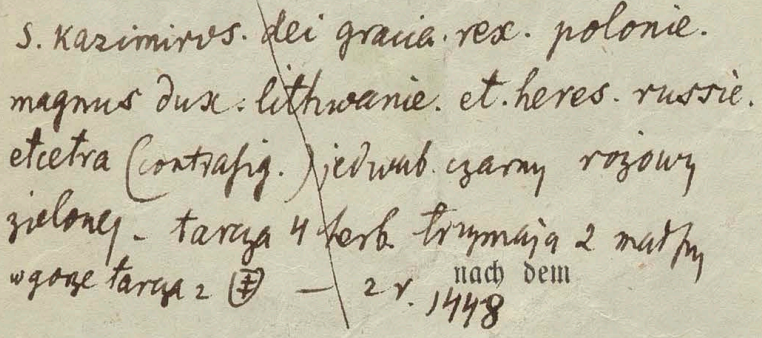 S. Kazimirvs. dei gracia. rex. polonie.
magnus dux. lithwanie. et. heres. russie.
etcetra (contrasig.) jedwab czarny różowy
zielony - tarcza 4 herb. trzymają 2 małpy
w górze tarcza z — 2 r. nach dem
1448